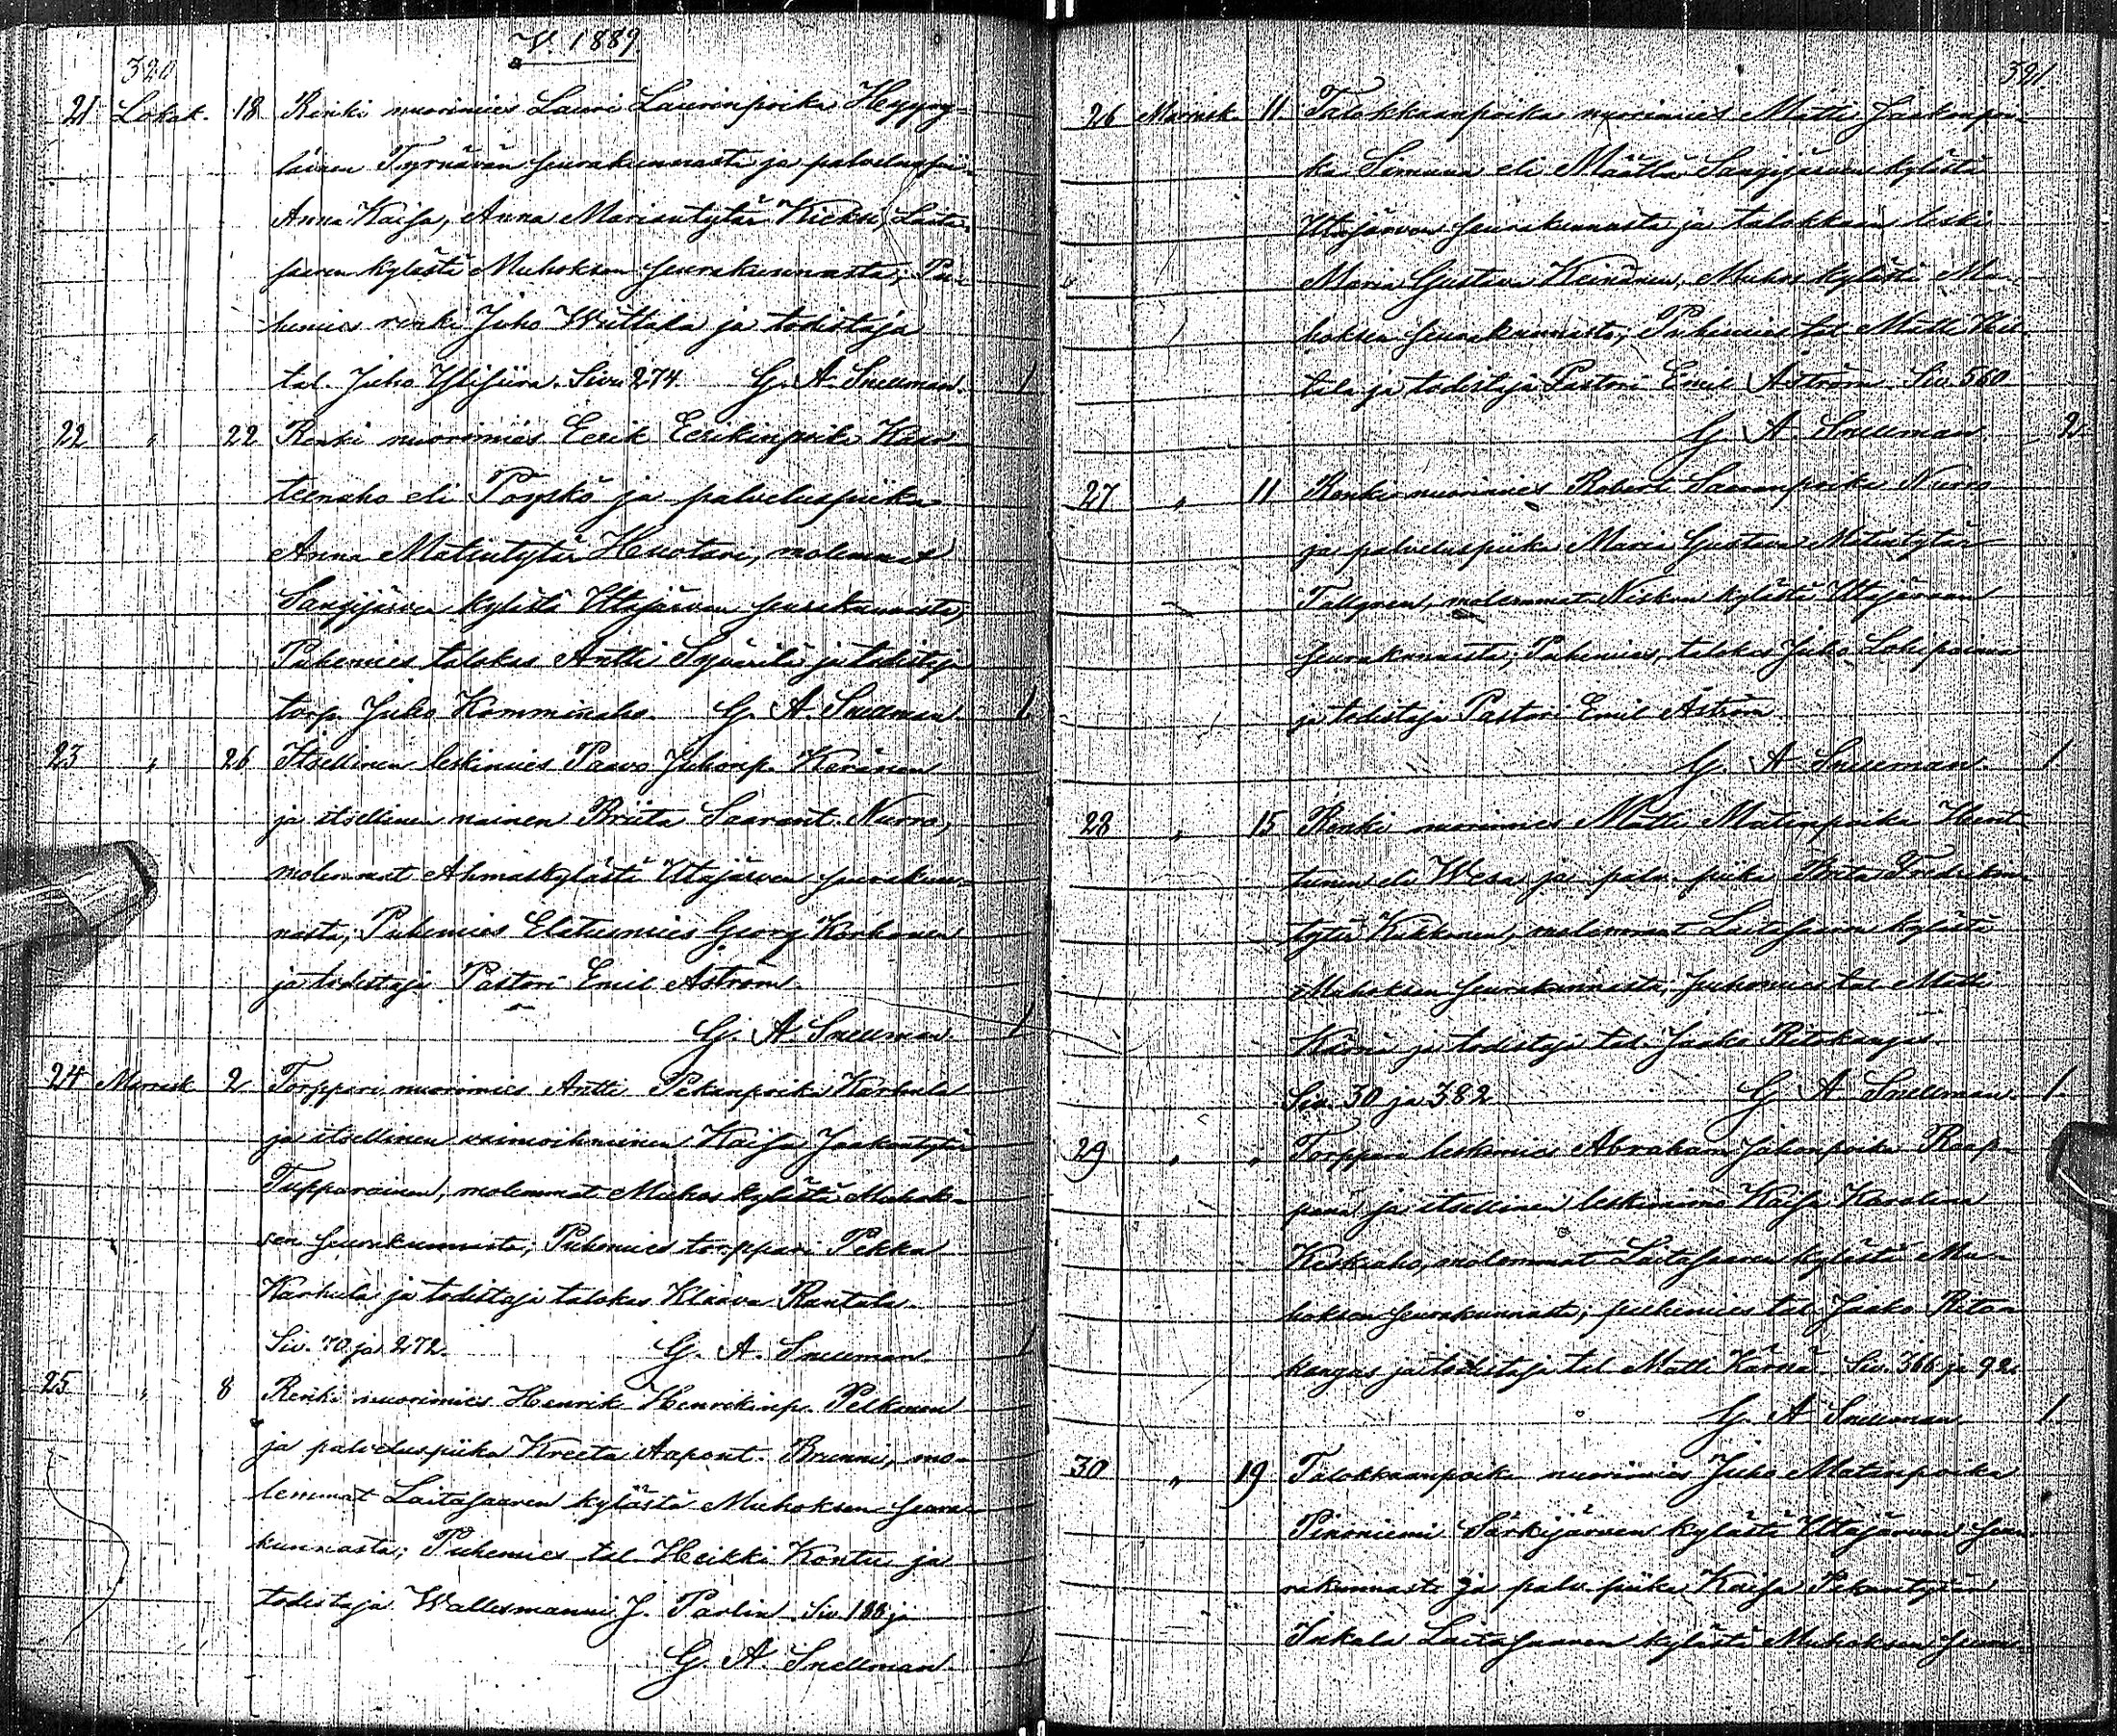 V. 1889
320
21 Lokak. 18 Renki nuorimies Lauri Laurinpoika Hyyry-
läinen Tyrnävän seurakunnasta ja palveluspii-
Anna Kaisa, Anna Mariantytär Kieku, Laita-
saaren kylästä Muhoksen seurakunnasta; Pu-
hemies renki Juho Wiittala ja todistaja
tal. Juho Ylisiira. Siv. 274. G. A. Snellman. 1
22 " 22 Renki nuorimies Eerik Eerikinpoika Kaar-
teenaho eli Pöyskö ja palveluspiika
Anna Matintytär Huotari, molemmat
Sangijärven kylästä Utajärven seurakunnasta;
Puhemies talokas Antti Syvärilä ja todistaja
torp. Juho Komminaho. G. A. Snellman. 1
23 " 26 Itsellinen leskimies Paavo Juhonp. Keränen
ja itsellinen nainen Briita Saarant. Nurro,
molemmat Ahmaskylästä Utajärven seurakun-
nasta; Puhemies Elatusmies Georg Korhonen
ja todistaja Pastori Emil Åström.
G. A. Snellman. 1
24 Marrask. 2 Torppari nuorimies Antti Pekanpoika Karhula
ja itsellinen vaimoihminen Kaisa Jaakontytär
Tupparainen, molemmat Muhos kylästä Muhok-
sen seurakunnasta; Puhemies torppari Pekka
Karhula ja todistaja talokas Klaava Rantala.
Siv. 70 ja 272. G. A. Snellman. 1
25 " 8 Renki nuorimies Henrik Henrikinp. Pelkonen
ja palveluspiika Kreeta Aapont. Brunni, mo-
lemmat Laitasaaren kylästä Muhoksen seura-
kunnasta; Puhemies tal. Heikki Kontu ja
todistaja Wallesmanni J. Parlin Siv. 186 ja
G. A. Snellman. 1
321.
26 Marrask. 11. Talokkaanpoika nuorimies Matti Jaakonpoi-
ka Simuna eli Määttä Sangijärven kylästä
Utajärven seurakunnasta ja talokkaan leski
Maria Gustava Keinänen, Muhos kylästä Mu-
hoksen seurakunnasta; Puhemies tal. Matti
tala ja todistaja Pastori Emil Åström. Siv. 560
G. A. Snellman. 2.
27 " 11 Renki nuorimies Robert Saaranpoika Nurro
ja palveluspiika Maria Gustava Matintytär
Tallgren, molemmat Niskan kylästä Utajärven
seurakunnasta; Puhemies, talokas Juho Lohipoima
ja todistaja Pastori Emil Åström.
G. A. Snellman. 1
28 " 15 Renki nuorimies Matti Matinpoika Hent-
tunen eli Wesa ja palv. piika Brita Fredrikin-
tytär Kukkonen, molemmat Laitasaaren kylästä
Muhoksen seurakunnasta; puhemies tal. Matti
Kärnä ja todistaja tal. Jaako Ritokangas.
Siv. 30 ja 382 G. A. Snellman. 1.
29 " " Torppari leskimies Abraham Juhonpoika Raap-
pana ja itsellinen leskivaimo Kaisa Karolina
Keskiaho, molemmat Laitasaaren kylästä Mu-
hoksen seurakunnasta; puhemies tal. Jaako Rito-
kangas ja todistaja tal. Matti Kärnä. Siv. 366 ja 92.
G. A. Snellman. 1.
30 " 19 Talokkaanpoika nuorimies Juho Matinpoika
Pinoniemi Särkijärven kylästä Utajärven seu-
rakunnasta ja palv. piika Kaisa Pekantytär
Inkala Laitasaaren kylästä Muhoksen seura-